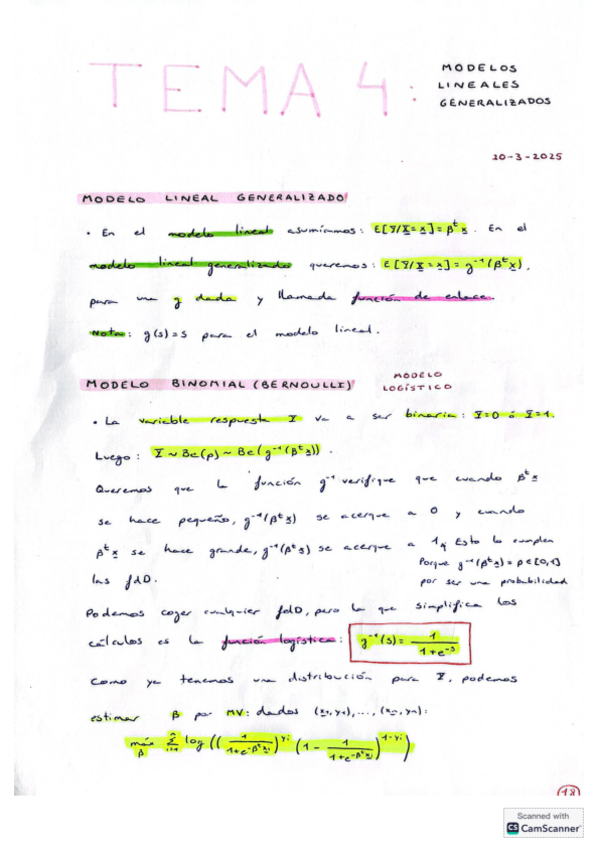 TEMA 4: MODELOS
LINEALES
GENERALIZADOS
10-3-2025
MODELO LINEAL GENERALIZADO
• En el modelo lineal asumíamos: E[Y/X=x]=βᵗx. En el
modelo lineal generalizado queremos: E[Y/X=x]=g⁻¹(βᵗx),
para una g dada y llamada función de enlace.
Nota: g(s)=s para el modelo lineal.
MODELO BINOMIAL (BERNOULLI) MODELO
LOGÍSTICO
• La variable respuesta Y va a ser binaria: Y=0 ó Y=1.
Luego: Y~Be(p)~Be(g⁻¹(βᵗx)).
Queremos que la función g⁻¹ verifique que cuando βᵗx
se hace pequeño, g⁻¹(βᵗx) se acerque a 0 y cuando
βᵗx se hace grande, g⁻¹(βᵗx) se acerque a 1. Esto lo cumplen
las fdD. Porque g⁻¹(βᵗx)=p∈[0,1]
por ser una probabilidad
Podemos coger cualquier fdD, pero la que simplifica los
cálculos es la función logística: g⁻¹(s)= 1/(1+e⁻ˢ)
Como ya tenemos una distribución para Y, podemos
estimar β por MV: dados (x₁,y₁),...,(xₙ,yₙ):
máx_β Σⁿᵢ₌₁ log((1/(1+e^(-βᵗxᵢ)))^yᵢ (1 - 1/(1+e^(-βᵗxᵢ)))^(1-yᵢ))
18
Scanned with
CS CamScanner